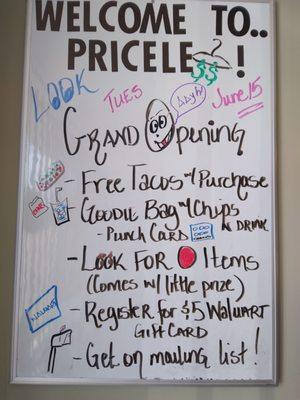 WELCOME TO..
PRICELE !
$$
LOOK
TUES
June 15
GRAND OPENING
- FREE TACOS w/ PURCHASE
- GOODIE BAG w/ CHIPS
& DRINK
- PUNCH CARD
- LOOK FOR ITEMS
(COMES w/ little prize)
- Register for $5 WALMART
GIFT CARD
- Get on mailing list!